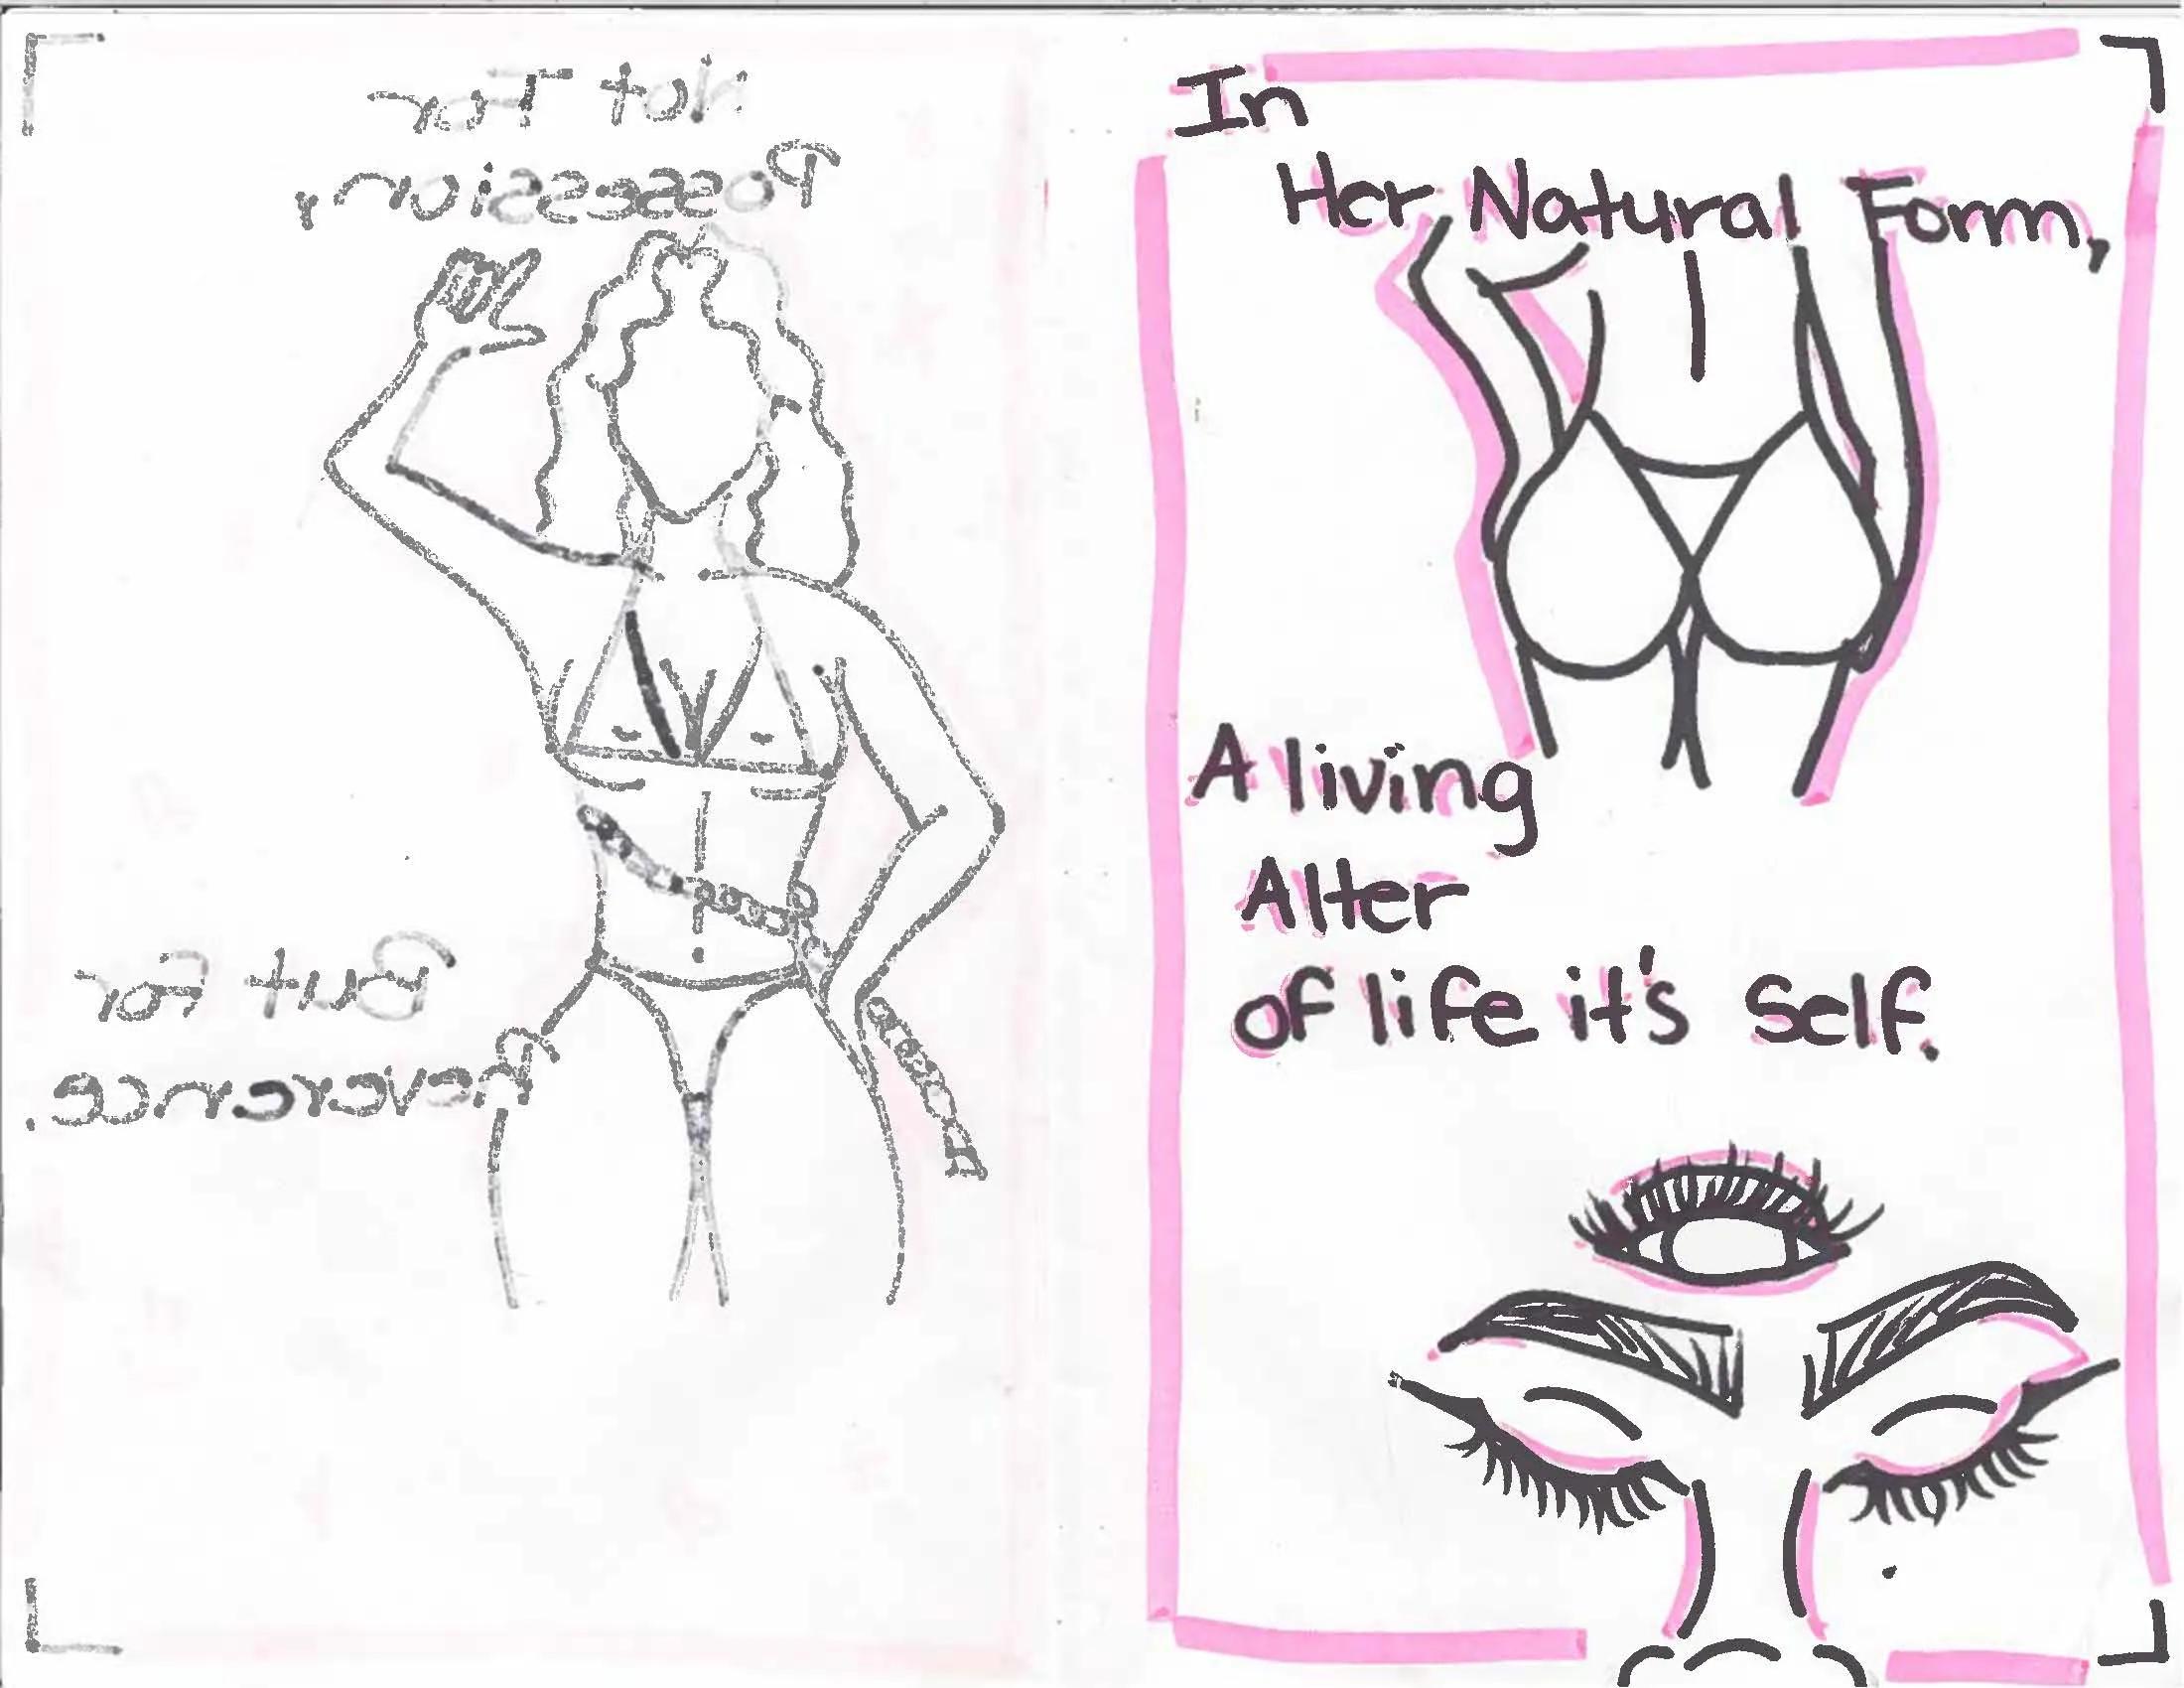 Not For
Possession,
But For
Reverence.
In
Her Natural Form,
A living
Alter
of life it's self.